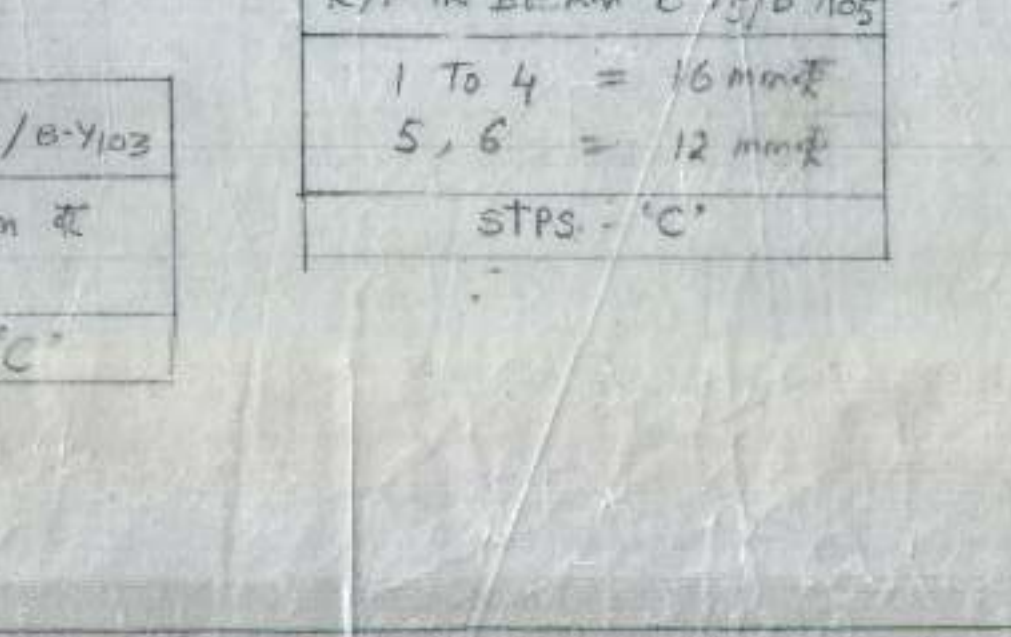 /B-Y103
"C"
1 TO 4 = 16 mm
5, 6 = 12 mm
STPS. - "C"